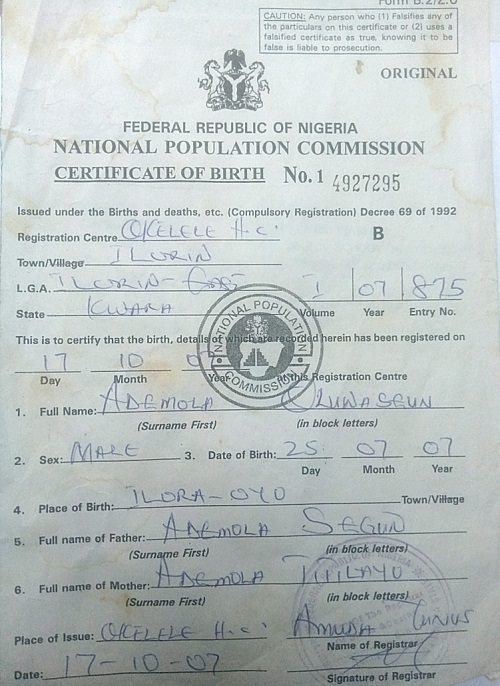 Form B.2/2.0
CAUTION: Any person who (1) Falsifies any of
the particulars on this certificate or (2) uses a
falsified certificate as true, knowing it to be
false is liable to prosecution.
ORIGINAL
FEDERAL REPUBLIC OF NIGERIA
NATIONAL POPULATION COMMISSION
CERTIFICATE OF BIRTH No. 1 4927295
Issued under the Births and deaths, etc. (Compulsory Registration) Decree 69 of 1992
Registration Centre OKELELE H.C. B
Town/Village ILORIN
L.G.A. ILORIN-EAST I 07 875
State KWARA Volume Year Entry No.
This is to certify that the birth, details of which are recorded herein has been registered on
17 10 07
Day Month Year at this Registration Centre
NATIONAL POPULATION COMMISSION
1. Full Name: ADEMOLA OLUWASEUN
(Surname First) (in block letters)
2. Sex: MALE 3. Date of Birth: 25 07 07
Day Month Year
4. Place of Birth: ILORA-OYO Town/Village
5. Full name of Father: ADEMOLA SEGUN
(Surname First) (in block letters)
6. Full name of Mother: ADEMOLA TITILAYO
(Surname First) (in block letters)
Place of Issue: OKELELE H.C.
Name of Registrar
Date: 17-10-07
Signature of Registrar